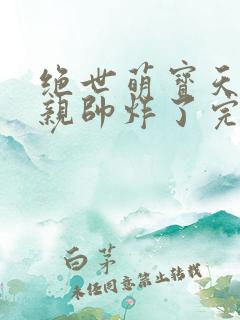 绝世萌宝天
亲帅炸了完
白茅
未经同意禁止转载